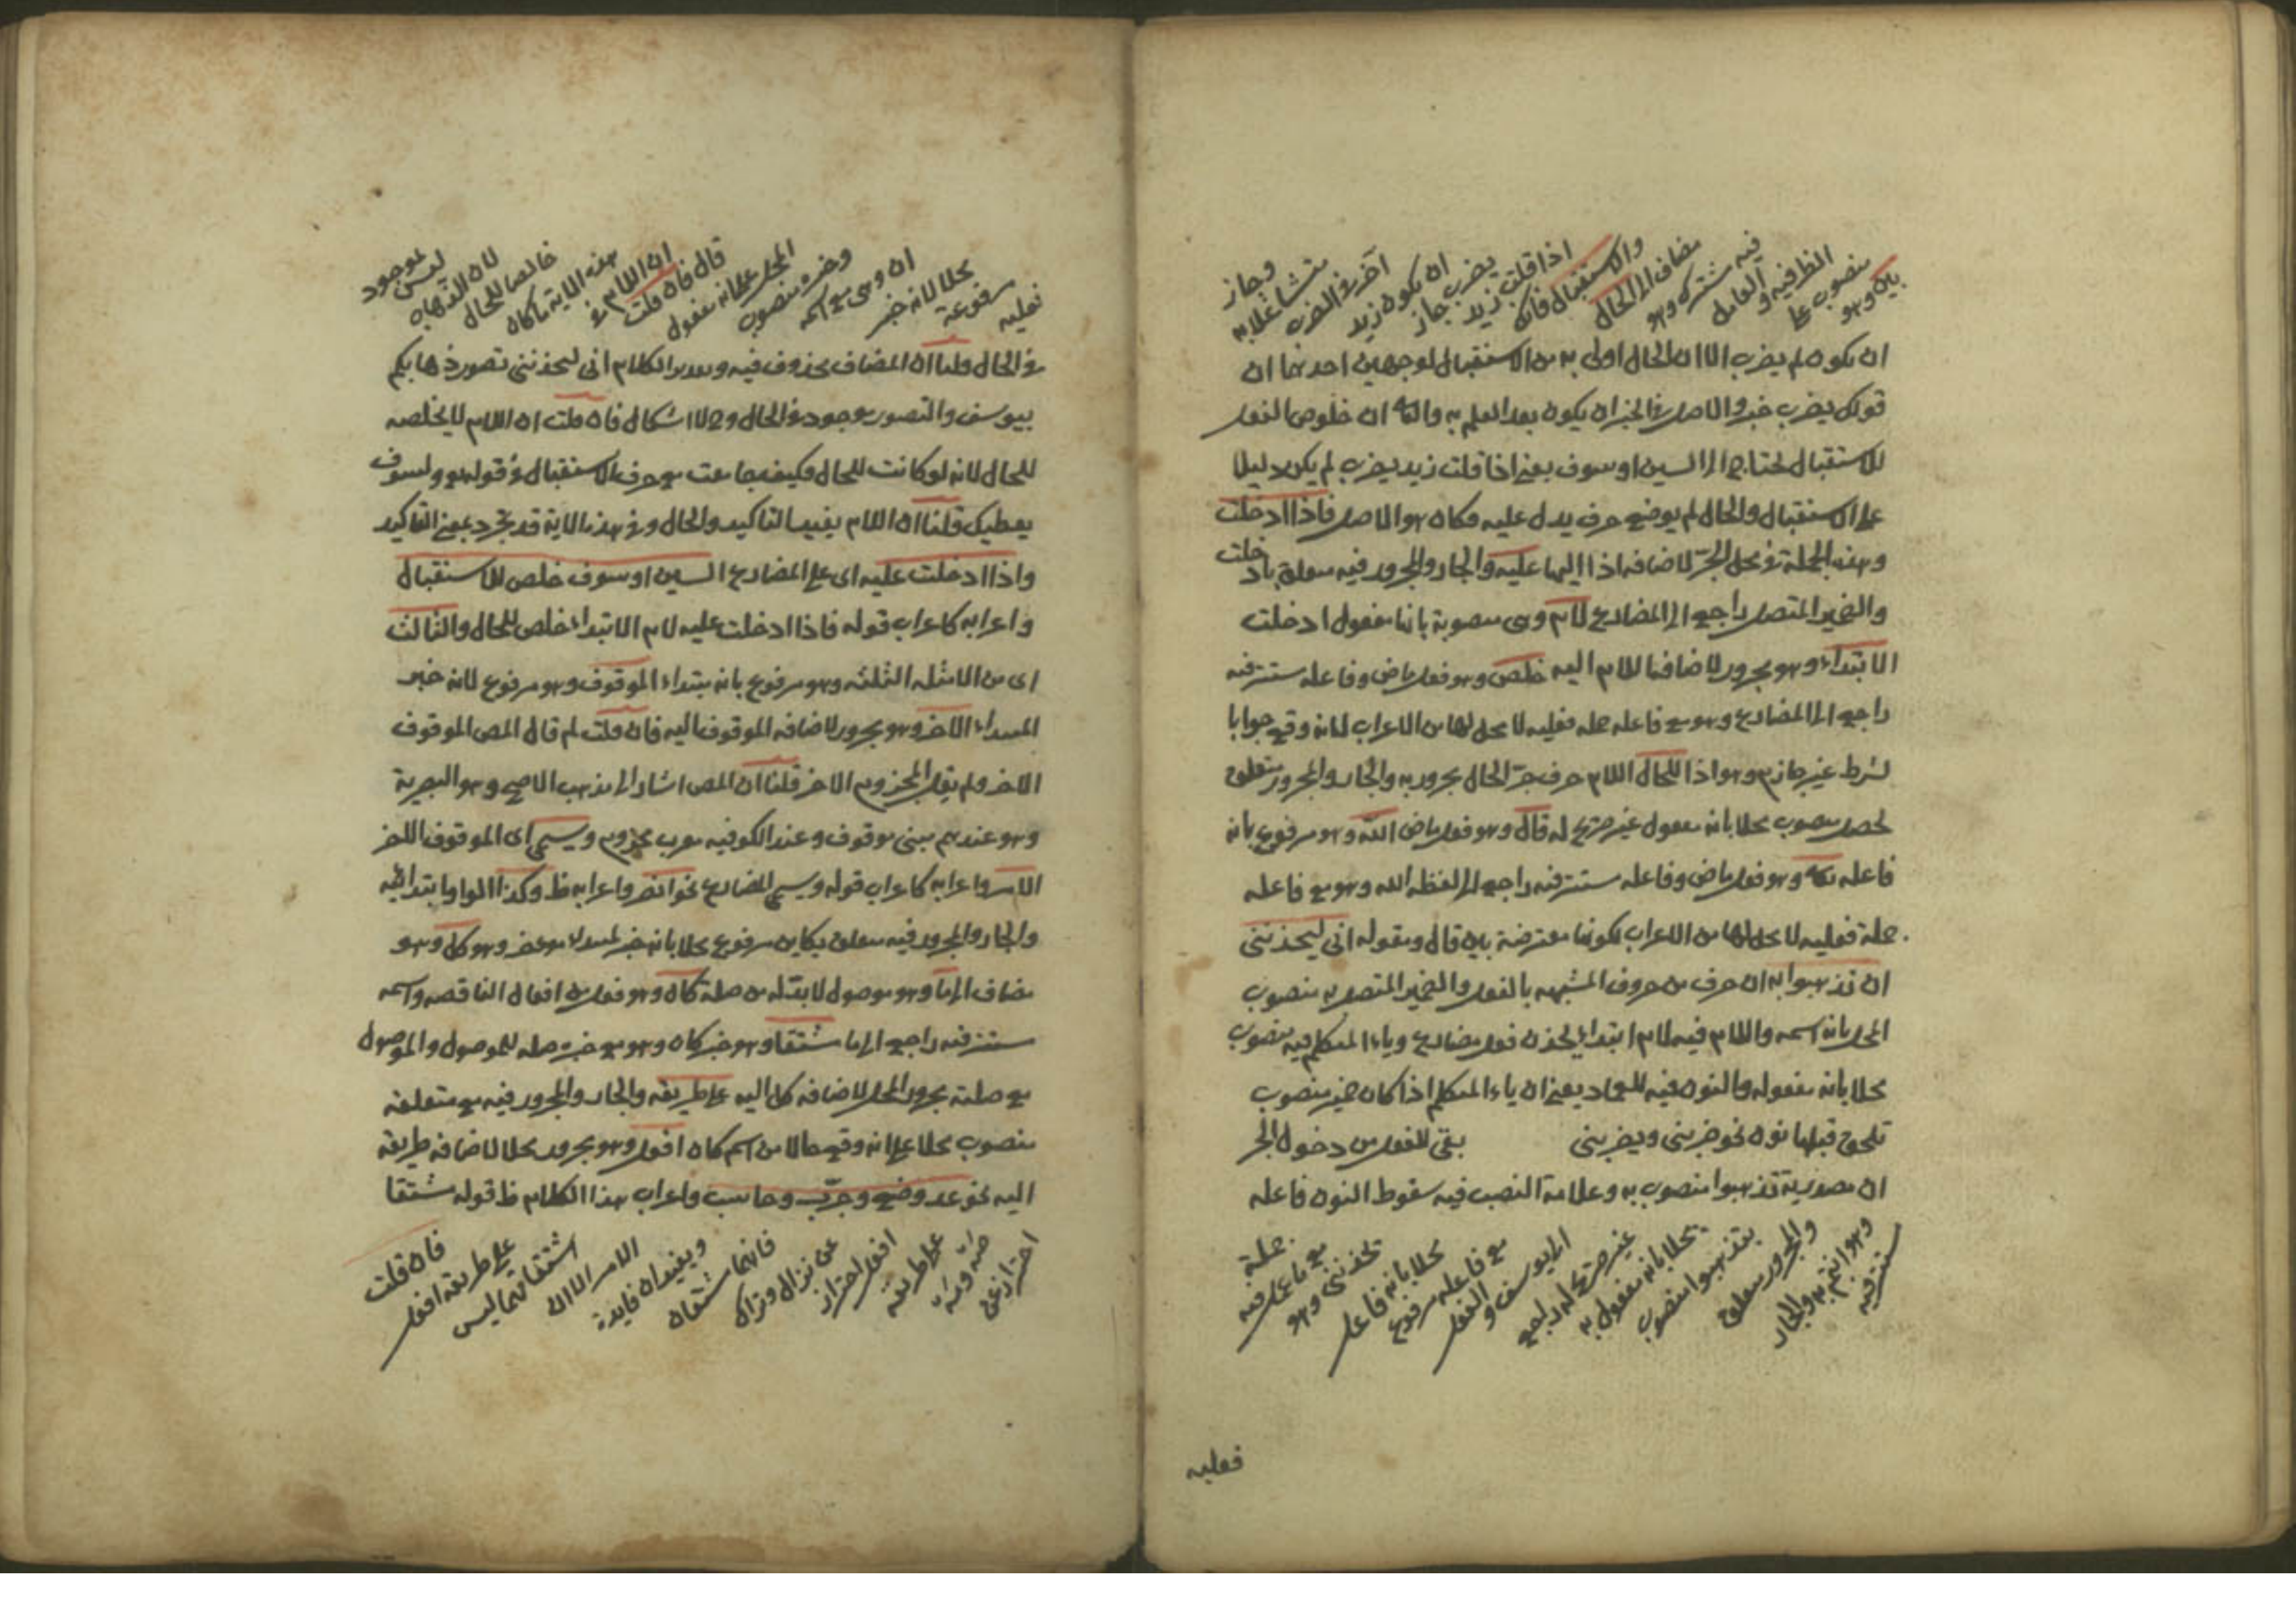 بين وهو
منصوب على
الظرفية والعامل
فيه مشترك وهو
مضاف الى الحال
والاستقبال فانك
اذا قلت زيد
يضرب جاز
ان يكون زيد
آخر في الضرب
متشاغلا به
وجاز
ان يكون لم يضرب الا ان الحال اولى به من الاستقبال لوجهين احدهما ان
قولك يضرب خبر والاصل في الخبر ان يكون بعد العلم به والثانى ان خلوص الفعل
للاستقبال لحتاج الى السين او سوف يعنى اذا قلت زيد يضرب لم يكن دليلا
على الاستقبال والحال لم يوضع حرف يدل عليه فكان هو الاصل فاذا ادخلت
وهذه الجملة في محل الجر لاضافة اذا اليها عليه والجار والمجرور فيه متعلق بادخلت
والضمير المتصل راجع الى المضارع لام وهى منصوبة بانها مفعول ادخلت
الابتداء وهو مجرور لاضافة اللام اليه خلص وهو فعل ماض وفاعله مستتر فيه
راجع الى المضارع وهو مع فاعله جملة فعلية لا محل لها من الاعراب لانه وقع جوابا
لشرط غير جازم وهو اذا للحال اللام حرف جر الحال مجرور به والجار والمجرور متعلق
لخلص منصوب محلا بانه مفعول غير صريح له قال وهو فعل ماض الله وهو مرفوع بانه
فاعله تعالى وهو فعل ماض وفاعله مستتر فيه راجع الى لفظة الله وهو مع فاعله
جملة فعلية لا محل لها من الاعراب لكونها معترضة بين قال ومقوله انى ليحذننى
ان تذهبوا به ان حرف من حروف المشبهة بالفعل والضمير المتصل به منصوب
المحل بانه اسمه واللام فيه لام ابتداء يحذن فعل مضارع وياء المتكلم فيه منصوب
محلا بانه مفعوله والنون فيه للعماد يعنى ان ياء المتكلم اذا كان ضمير منصوب
تلحق قبلها نون نحو ضربنى ويضربنى بقى للفعل من دخول الجر
ان مصدرية تذهبوا منصوب به وعلامة النصب فيه سقوط النون فاعله
مستتر فيه
وهو انتم به والجار
والمجرور متعلق
بتذهبوا منصوب
محلا بانه مفعول به
غير صريح له راجع
الى يوسف والفعل
مع فاعله مرفوع
محلا بانه فاعل
يحذننى وهو
مع ما عمل فيه
جملة
فعليه
فعليه
مرفوعة
محلا لانه خبر
ان وهى مع اسمه
وخبره منصوب
المحل على انه مفعول
قال فان قلت
ان اللام في
هذه الاية ما كان
خالصا للحال
لان الذهاب
ليس بموجود
في الحال قلنا ان المضاف محذوف فيه وتقدير الكلام انى ليحذننى تصور ذهابكم
بيوسف والتصور موجود في الحال وح لا اشكال فان قلت ان اللام لا يخلصه
للحال لانه لو كانت للحال فكيف جامعت مع حرف الاستقبال في قوله تع ولسوف
يعطيك قلنا ان اللام يفيد التاكيد والحال وفي هذه الاية قد تجرد بمعنى التاكيد
واذا ادخلت عليه اى على المضارع السين او سوف خلص للاستقبال
واعرابه كاعراب قوله فاذا ادخلت عليه لام الابتداء خلص للحال والثالث
اى من الامثلة الثلثة وهو مرفوع بانه مبتداء الموقوف وهو مرفوع لانه خبر
المبتداء الآخر وهو مجرور لاضافة الموقوف اليه فان قلت لم قال المص الموقوف
الآخر ولم يقل المجزوم الآخر قلنا ان المص اشار الى مذهب الاصح وهو البصرية
وهو عندهم مبنى موقوف وعند الكوفية معرب مجزوم ويسمى اى الموقوف الآخر
الامر واعرابه كاعراب قوله ويسمى المضارع نحو انصر واعرابه ظ وكذا الواو ابتدائية
والجار والمجرور فيه متعلق بكاين مرفوع محلا بانه خبر لمبتداء مؤخر وهو كل وهو
مضاف الى ما وهو موصول لا بد له من صلة كان وهو فعل من افعال الناقصة واسمه
مستتر فيه راجع الى ما مشتقا وهو خبر كان وهو مع خبره صلة للموصول والموصول
مع صلته مجرور المحل لاضافة كل اليه على طريقة والجار والمجرور فيه مع متعلقه
منصوب محلا على انه وقع حالا من اسم كان افعل وهو مجرور محلا لاضافة طريقة
اليه نحو عد وضع وجرب وحاسب واعراب هذا الكلام ظ قوله مشتقا
احترازعن
صه ومه
على طريقة
افعل احتراز
عن نزال وتراك
فانهما مشتقان
ويفيدان فايدة
الامر الا ان
اشتقاقهما ليس
على طريقة افعل
فان قلت